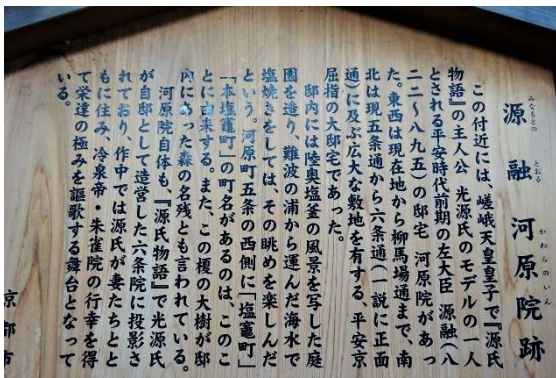 源融河原院跡
みなもとの とおる かわらのいん
この付近には、嵯峨天皇皇子で『源氏
物語』の主人公 光源氏のモデルの一人
とされる平安時代前期の左大臣 源融(八
二二〜八九五)の邸宅 河原院があっ
た。東西は現在地から柳馬場通まで、南
北は現五条通から六条通(一説に正面
通)に及ぶ広大な敷地を有する、平安京
屈指の大邸宅であった。
邸内には陸奥塩釜の風景を写した庭
園を造り、難波の浦から運んだ海水で
塩焼きをしては、その眺めを楽しんだ
という。河原町五条の西側に「塩竈町」
「本塩竈町」の町名があるのは、このこ
とに由来する。また、この榎の大樹が邸
内にあった森の名残とも言われている。
河原院自体も、『源氏物語』で光源氏
が自邸として造営した六条院に投影さ
れており、作中では源氏が妻たちとと
もに住み、冷泉帝・朱雀院の行幸を得
て栄達の極みを謳歌する舞台となって
いる。
京都市